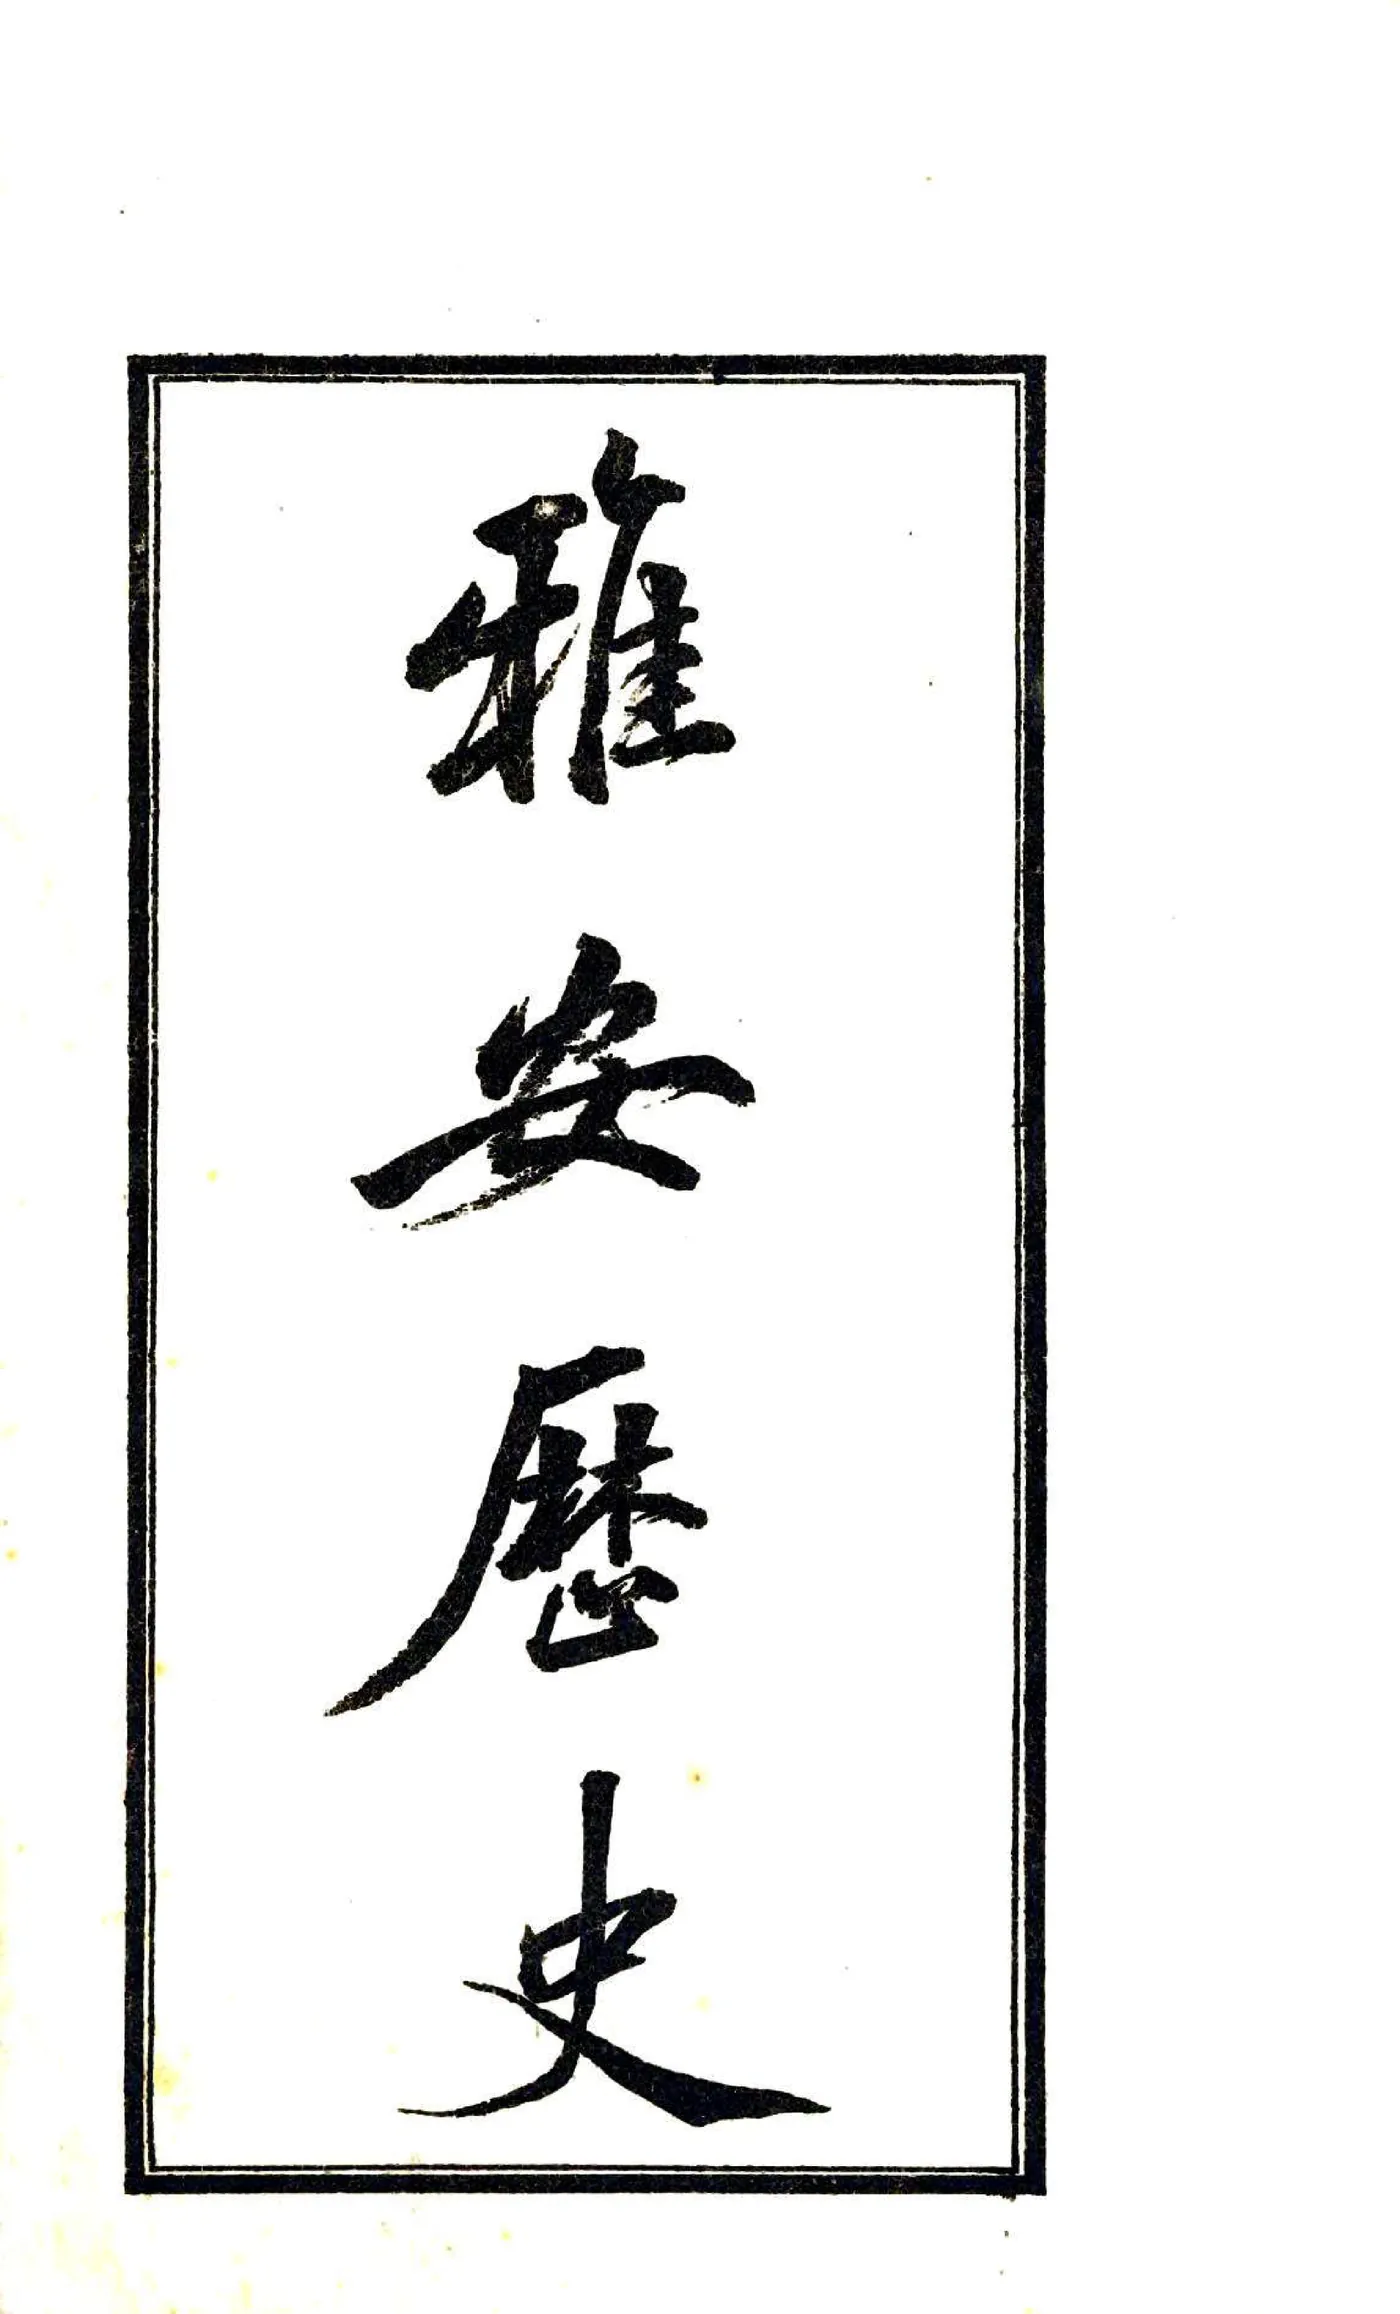 雅安歷史